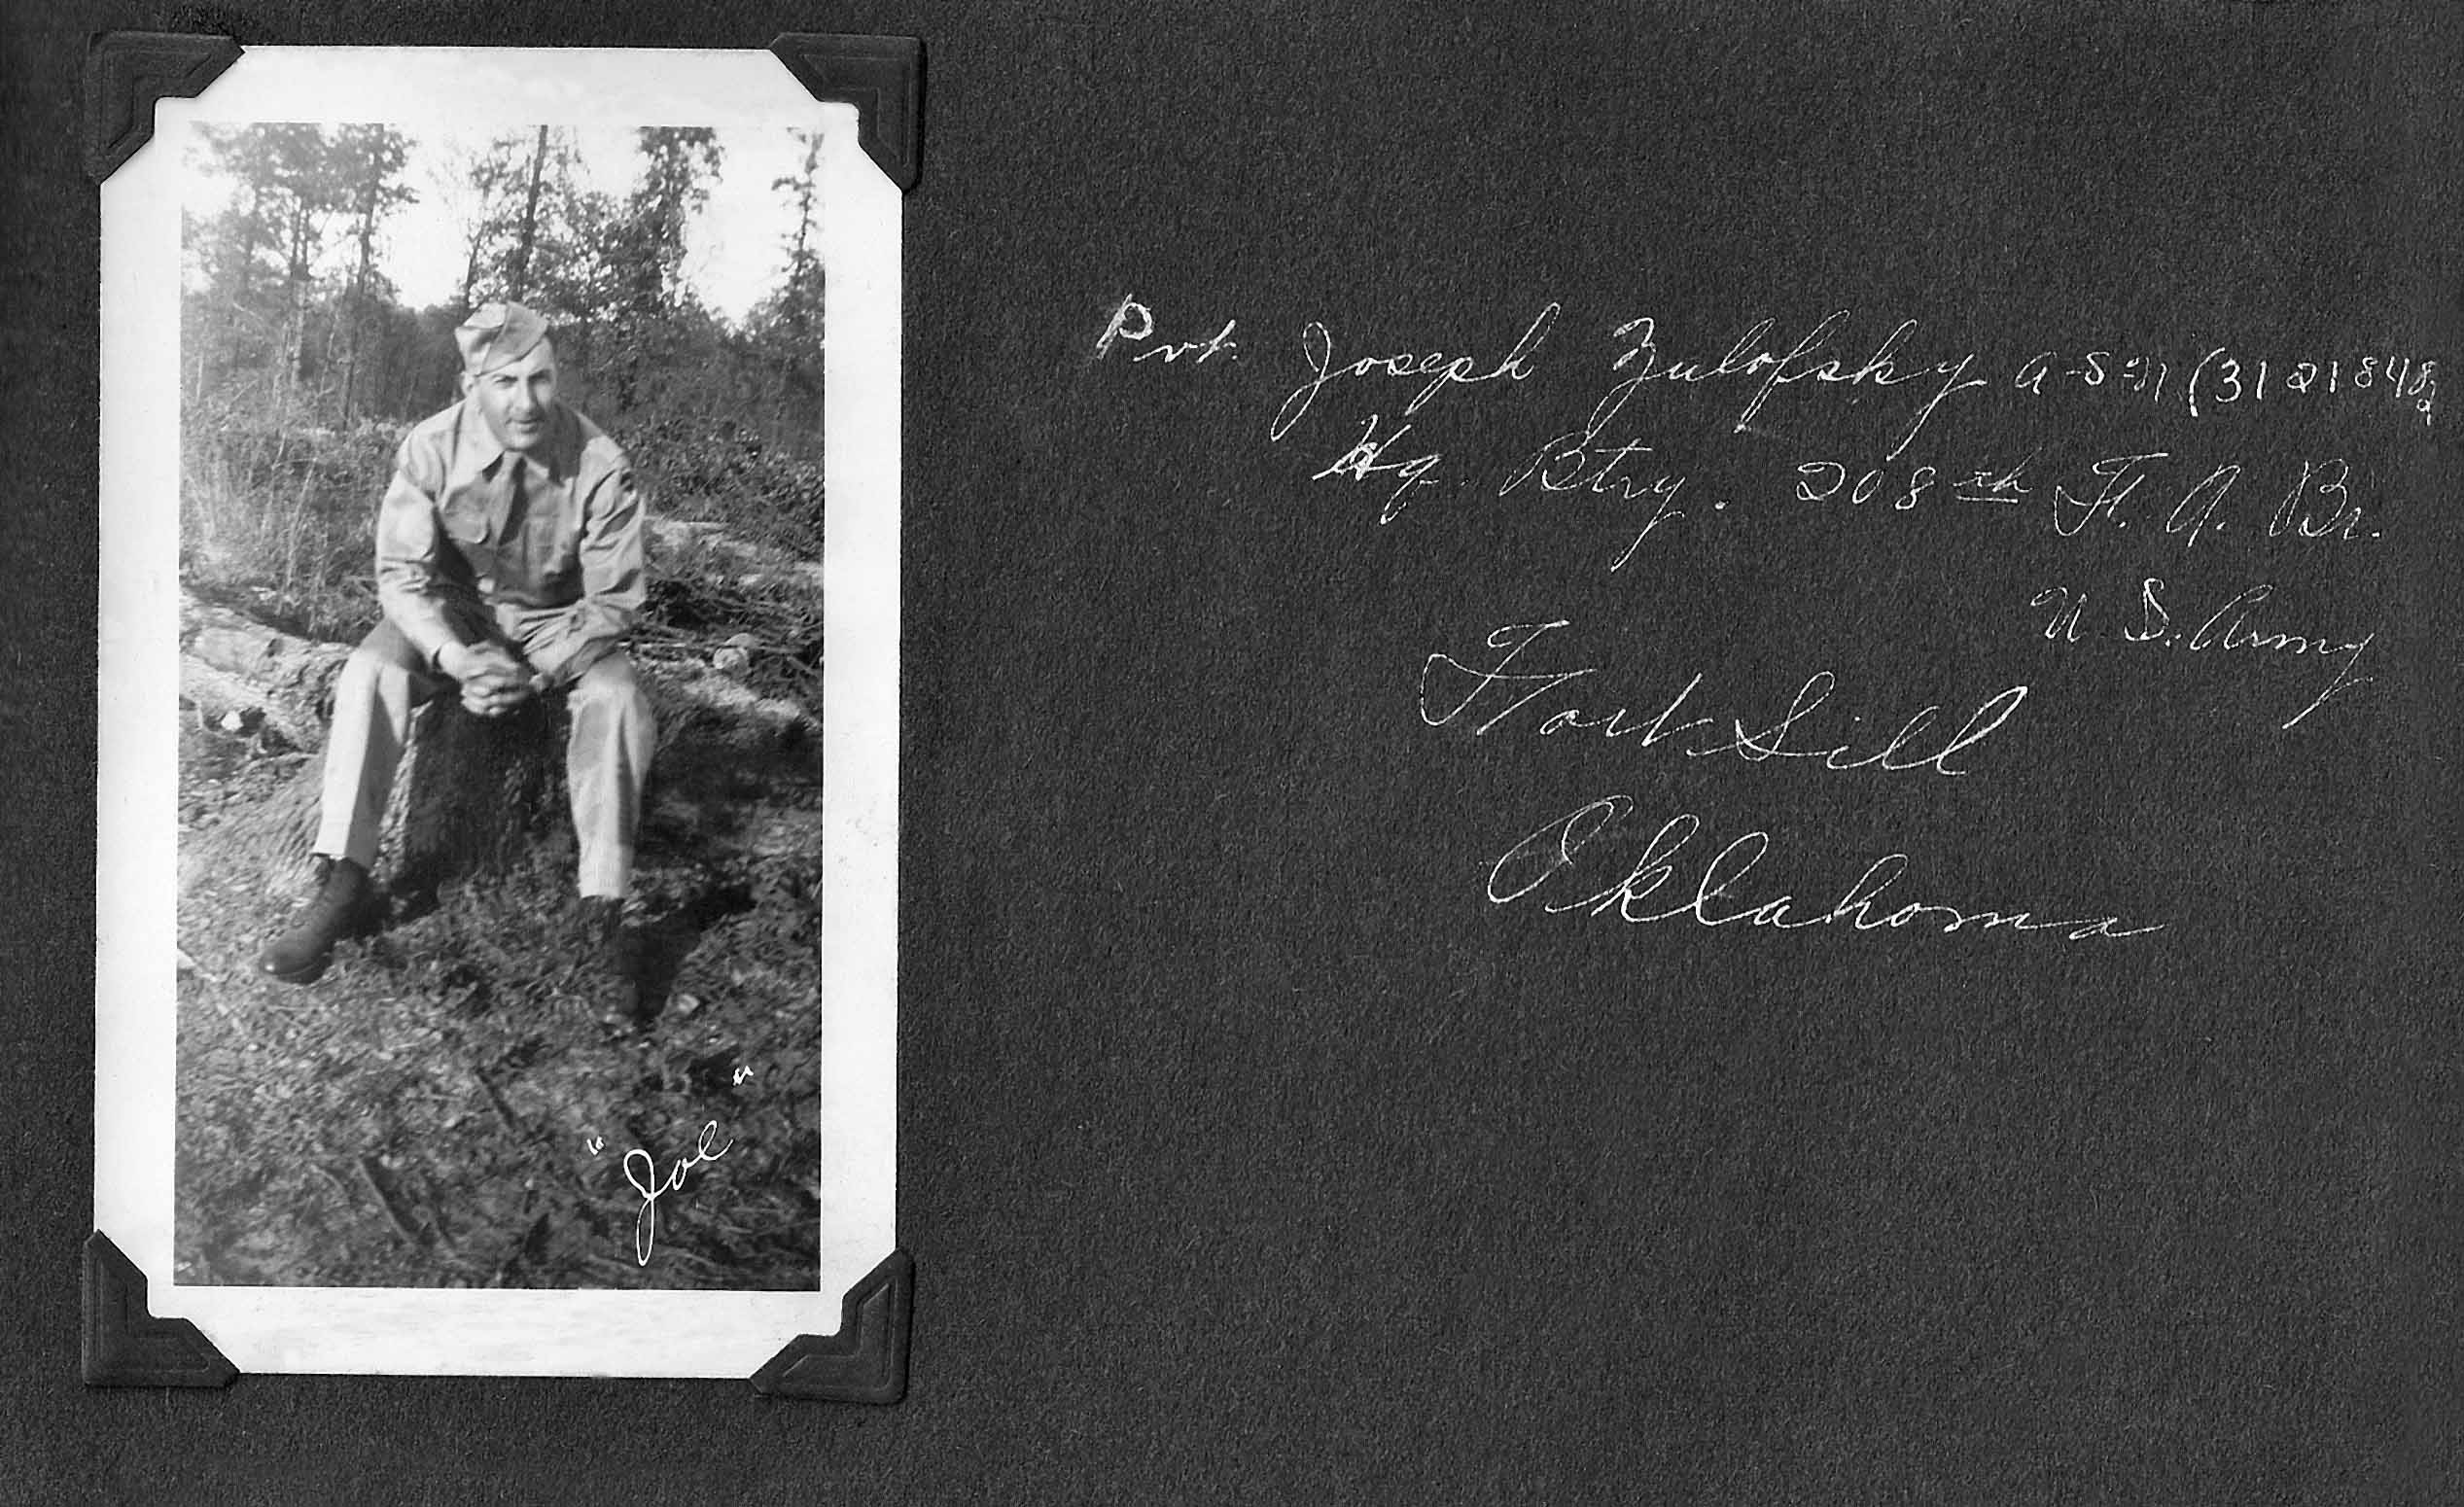 Pvt. Joseph Zulofsky
Hq. Btry. 208th F. A. Bn.
U. S. Army
Fort Sill
Oklahoma
"Joe"